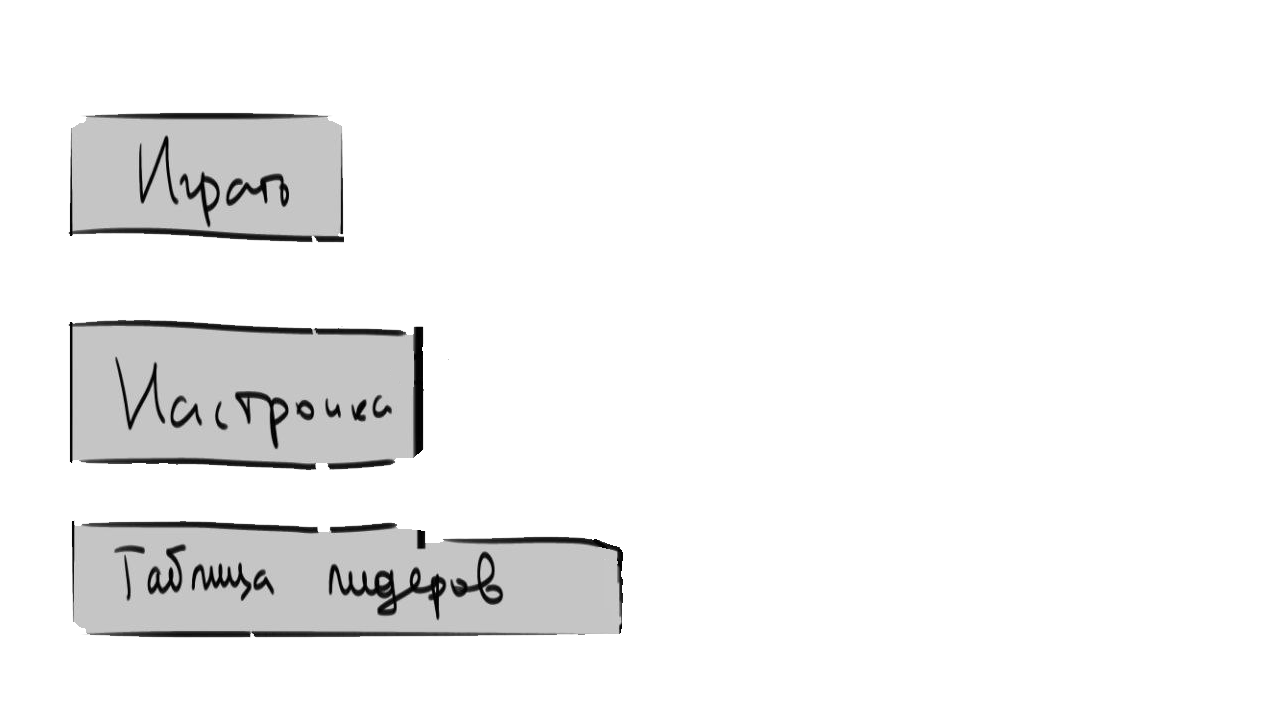 Играть
Настроика
Таблица лидеров